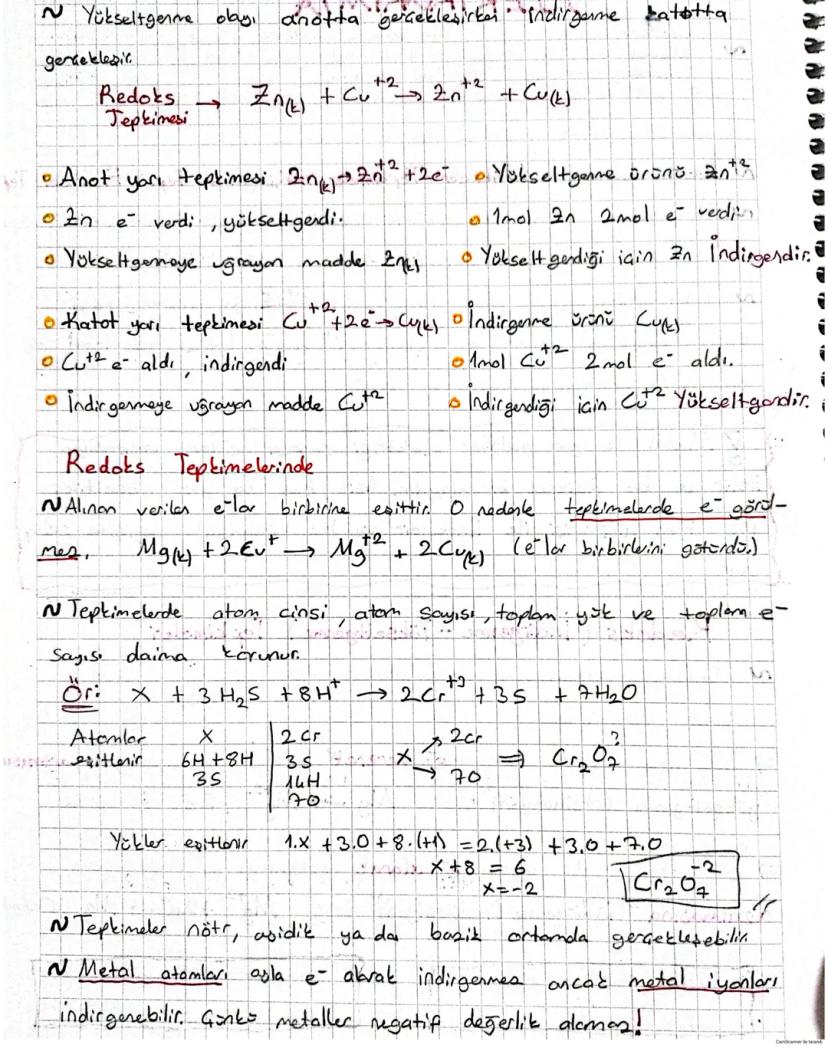 ~ Yükseltgenme olayı anotta gerçekleşirken indirgenme katotta
gerçekleşir.
Redoks Tepkimesi → Zn(k) + Cu⁺² → Zn⁺² + Cu(k)
• Anot yarı tepkimesi Zn(k) → Zn⁺² + 2e⁻ • Yükseltgenme ürünü Zn⁺²
• Zn e⁻ verdi, yükseltgendi. • 1mol Zn 2mol e⁻ verdi.
• Yükseltgenmeye uğrayan madde Zn(k) • Yükseltgendiği için Zn İndirgendir.
• Katot yarı tepkimesi Cu⁺² + 2e⁻ → Cu(k) • İndirgenme ürünü Cu(k)
• Cu⁺² e⁻ aldı, indirgendi • 1mol Cu⁺² 2mol e⁻ aldı.
• İndirgenmeye uğrayan madde Cu⁺² • İndirgendiği için Cu⁺² Yükseltgendir.
Redoks Tepkimelerinde
~ Alınan verilen e⁻lar birbirine eşittir. O nedenle tepkimelerde e⁻ görül-
mez. Mg(k) + 2Cu⁺ → Mg⁺² + 2Cu(k) (e⁻lar birbirlerini götürdü.)
~ Tepkimelerde atom cinsi, atom sayısı, toplam yük ve toplam e⁻
sayısı daima korunur.
Ör: X + 3H₂S + 8H⁺ → 2Cr⁺³ + 3S + 7H₂O
Atomlar X | 2Cr
eşitlenir 6H+8H | 3S X → 2Cr ⇒ Cr₂O₇^?
3S | 14H → 7O
7O
Yükler eşitlenir 1.x + 3.0 + 8.(+1) = 2.(+3) + 3.0 + 7.0
x+8 = 6
x=-2 Cr₂O₇⁻²
~ Tepkimeler nötr, asidik ya da bazik ortamda gerçekleşebilir.
~ Metal atomları asla e⁻ alarak indirgenmez ancak metal iyonları
indirgenebilir. Çünkü metaller negatif değerlik alamaz!
CamScanner ile tarandı